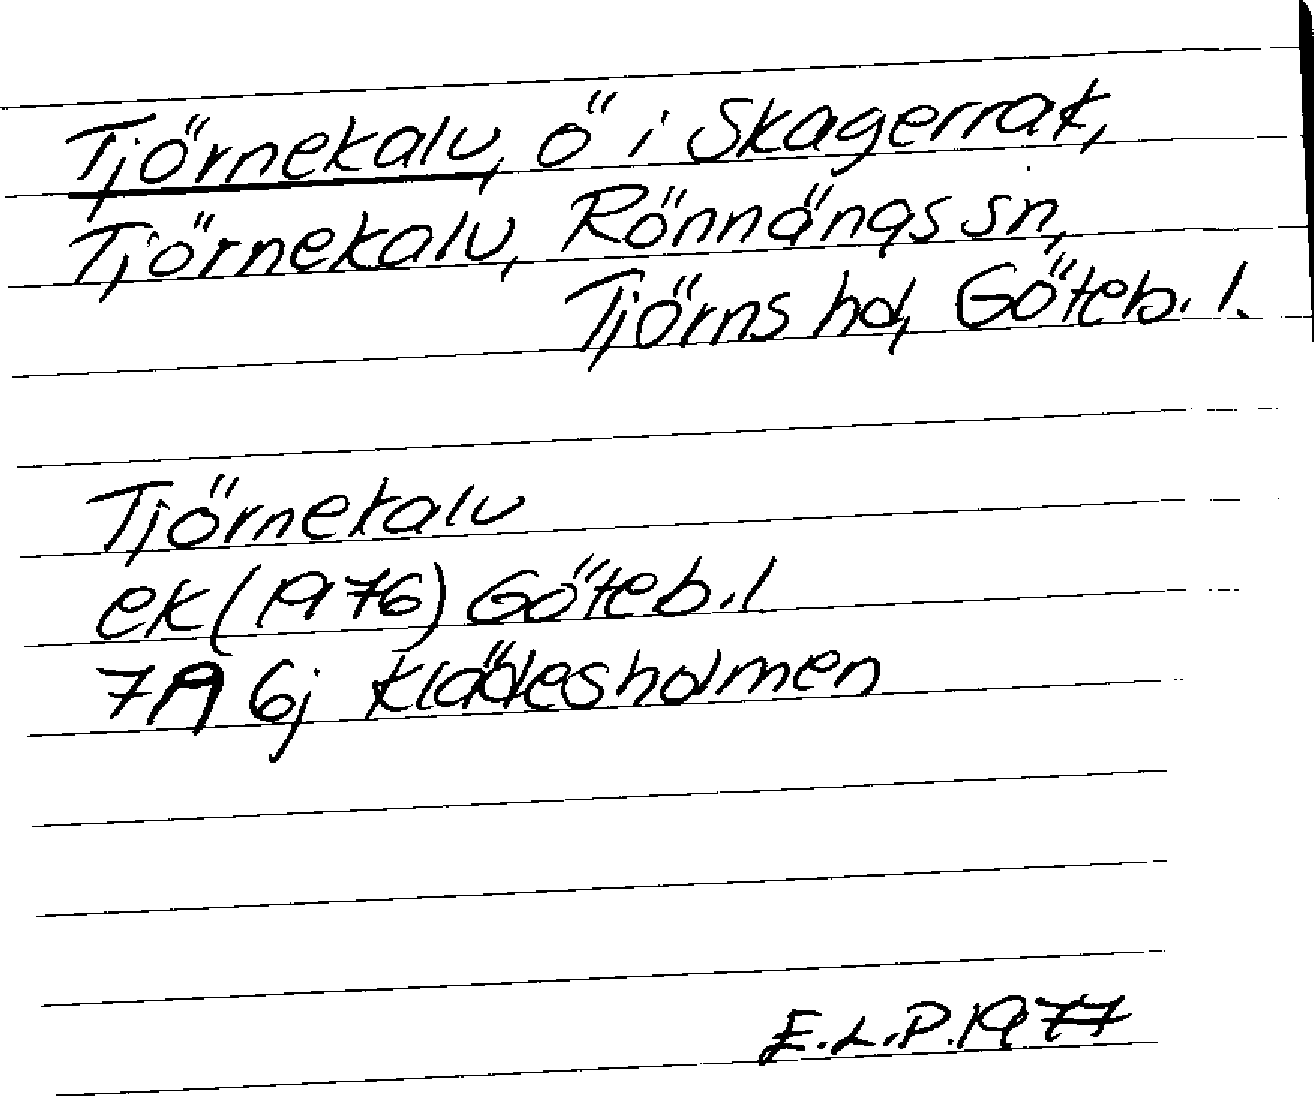 Tjörnekalv, ö i Skagerrak,
Tjörnekalv, Rönnängs sn,
Tjörns hd, Göteb. l.
Tjörnekalv
ek (1976) Göteb. l
7A 6j Klädesholmen
E.L.P. 1977